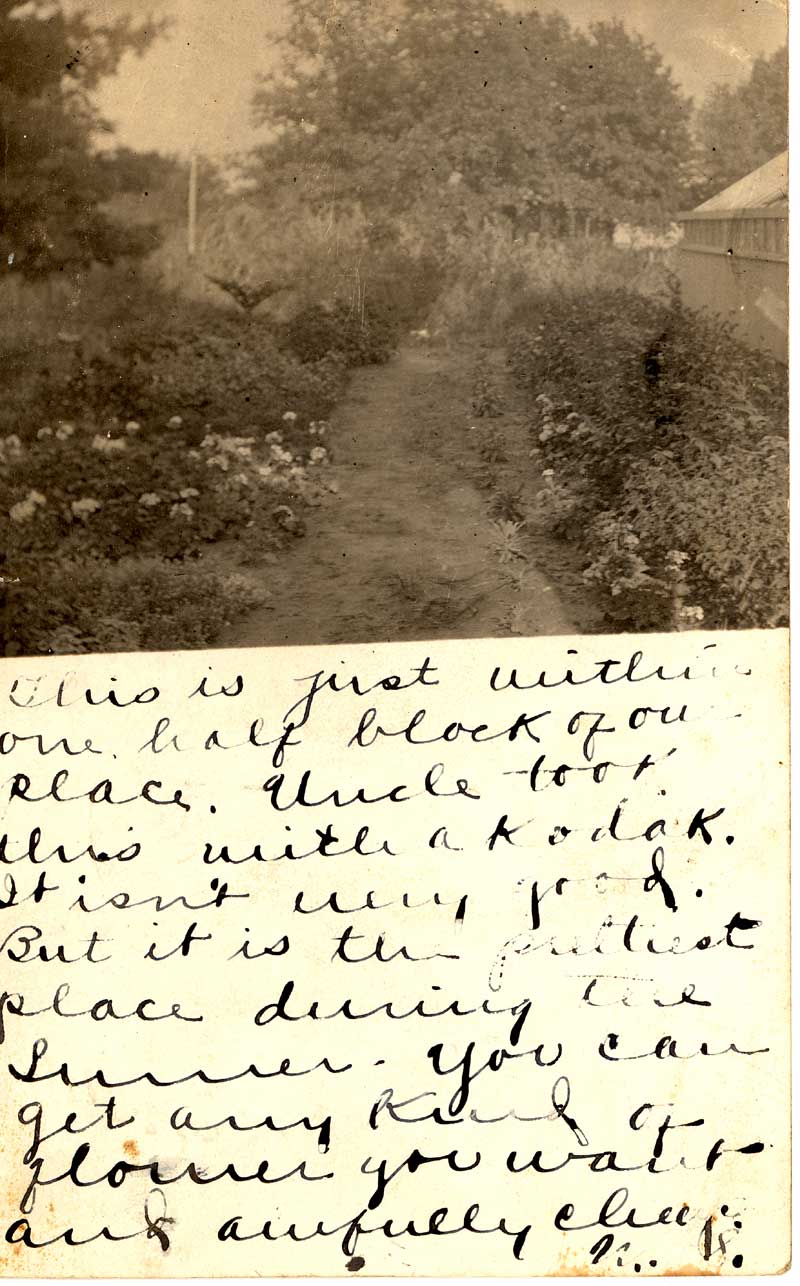 This is just within
one half block of our
place. Uncle took
this with a Kodak.
It isn't very good.
But it is the prettiest
place during the
Sumer. You can
get any kind of
flower you want
and awfully cheap.